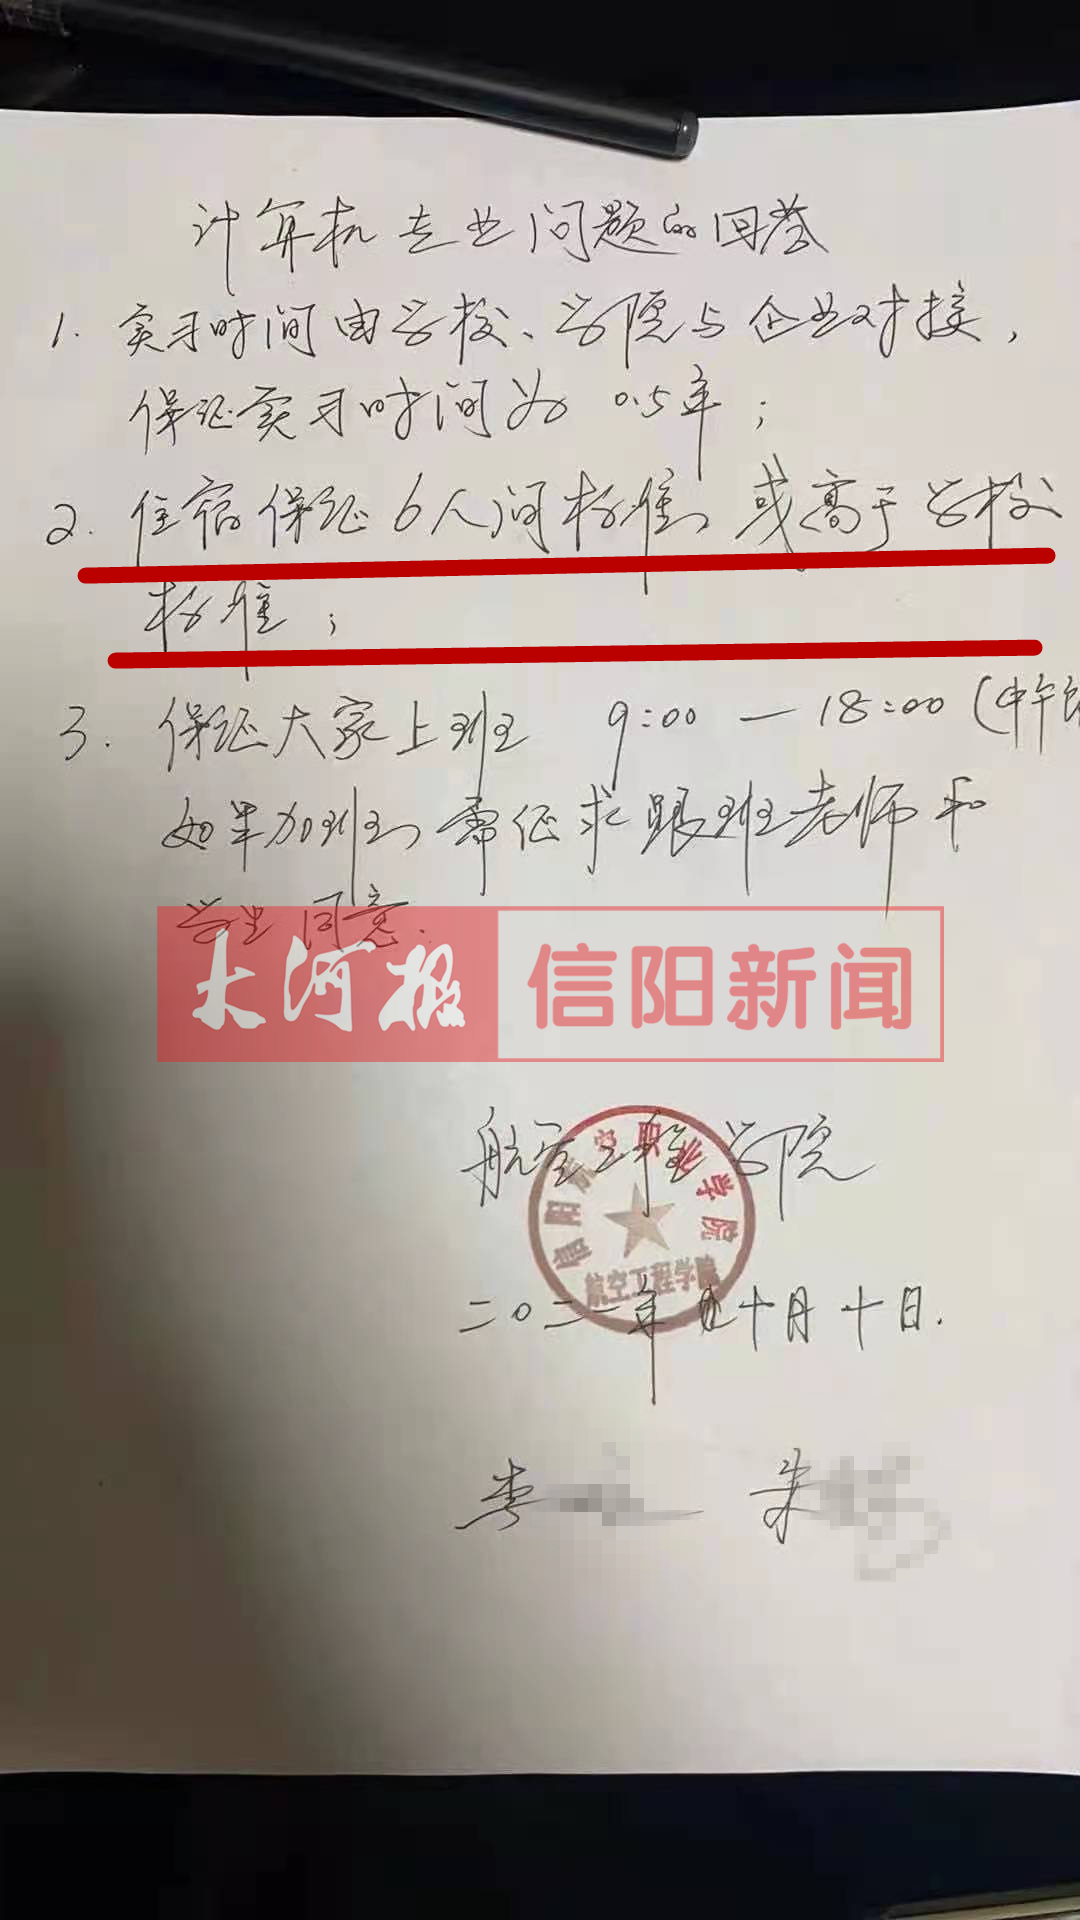 计算机专业问题的回答
1. 实习时间由学校、学院与企业对接，
保证实习时间为 0.5年；
2. 住宿保证6人间标准，或高于学校
标准；
3. 保证大家上班 9:00 — 18:00 (中午
如果加班，需征求跟班老师和
学生同意.
大河报 信阳新闻
航空工程学院
信阳航空职业学院
航空工程学院
二〇二一年 十月十日.
李 朱